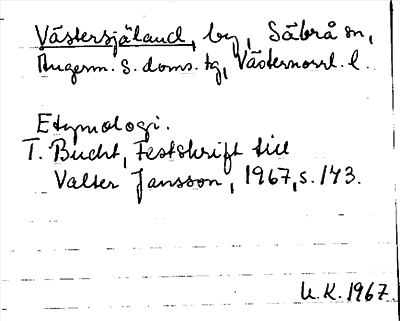 Västersjäland, by, Säbrå sn,
Ångerm. S. doms. tg, Västernorrl. l.
Etymologi.
T. Bucht, Festskrift till
Valter Jansson, 1967, s. 143.
U.K. 1967